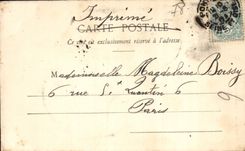 Imprimé
CARTE POSTALE
Ce côté est exclusivement réservé à l'adresse
Mademoiselle Magdeleine Boissy
6 rue St Quentin 6
Paris